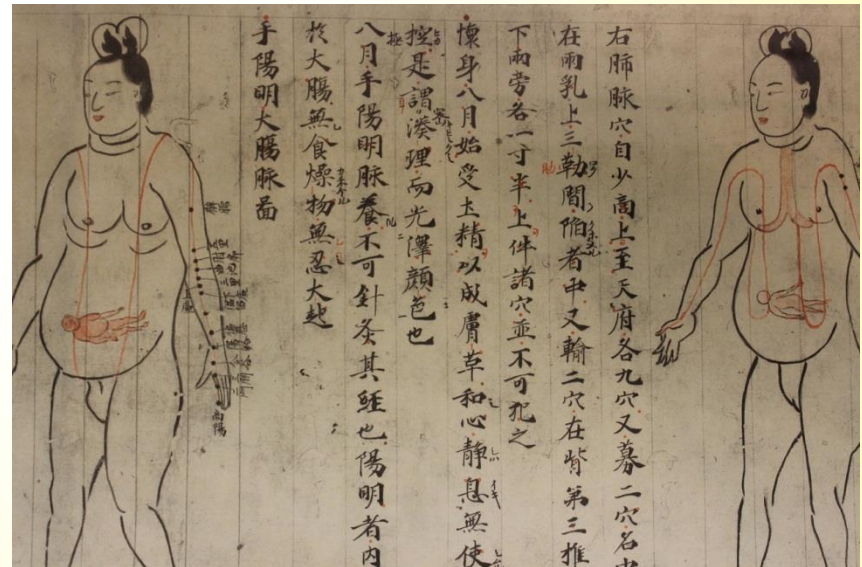 右肺脉穴自少商上至天府各九穴又募二穴名中
在兩乳上三勒間陷者中又輸二穴在背第三推
肋
下兩旁各一寸半上件諸穴並不可犯之
懷身八月始受土精以成膚草和心靜息無使
控是謂湊理而光澤顏色也
密
極
八月手陽明脉養不可針灸其經也陽明者內
於大腸無食燥物無忍大起
手陽明大腸脉啚
商陽